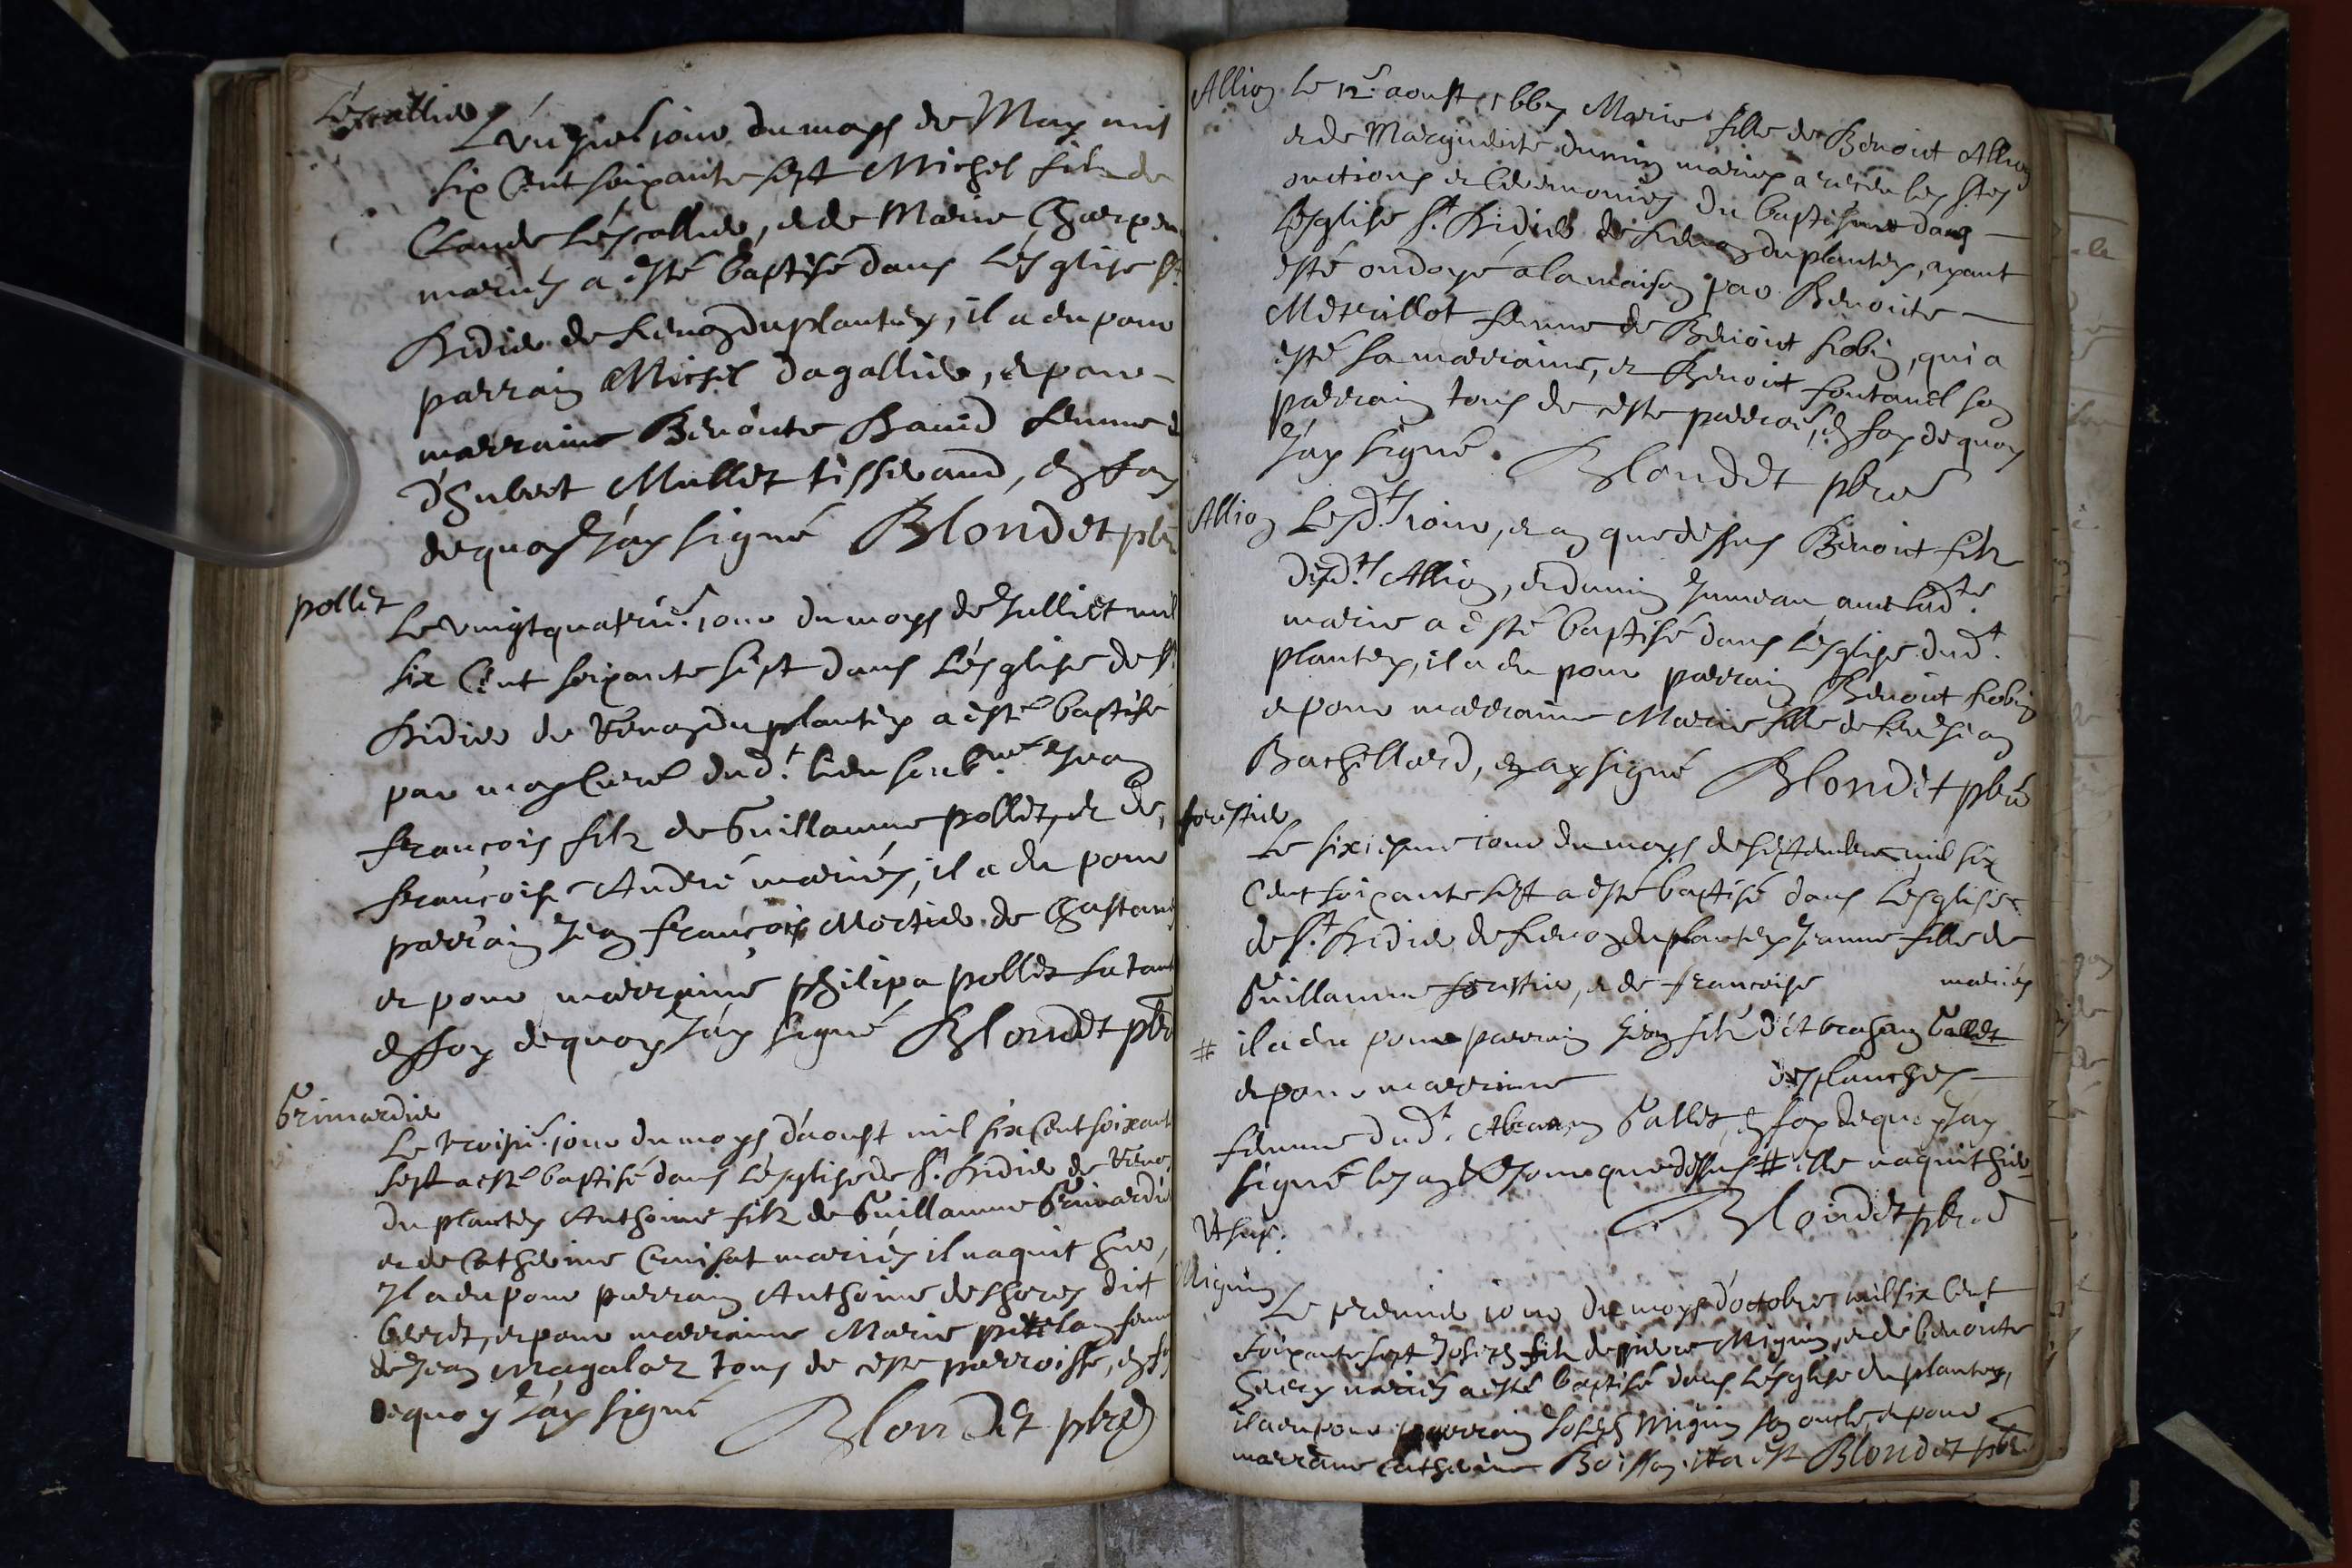 Lescallier
Le vingt jour du moys de May mil
six Cent soixante sept Michel filz de
Claude Lescallier, et de Marie Charpen
mariés a esté baptisé dans Lesglise St.
Didier de Renon du plantey, il a eu pour
parrain Michel dagallier, et pour
marraine Benoite Baud femme
d'hubert Mullet tisserand, en foy
dequoy J'ay signé Blondet pbre
pollet
Le vingtquatrie. jour du moys de Julliet mil
six Cent soixante sept dans Lesglise de St.
Didier de Renon du plantey a esté baptisé
par moy Curé dud.t lieu soubne. Jean
francois filz de Guillaume pollet, et de
francoise André mariés, il a eu pour
parrain Jean francois Mortier de Chastan
et pour marraine philipa pollet sa tant
en foy dequoy J'ay signé Blondet pbre
Grimardier
Le troisie. jour du moys d'aoust mil six Cent soixant
sept a esté baptisé dans Lesglise de St. Didier de Reno
du plantey Anthoine filz de Guillaume Grimardie
et de Catherine Cruisat mariés il naquit hier,
Il a eu pour parrain Anthoine deshores dict
berret, et pour marraine Marie pitelan femme
de Jean Magalon tous de ceste parroisse, en foy
dequoy J'ay signé Blondet pbre
Allion Le 12.e aoust 1667 Marie fille de Benoit Allion
et de Marguerite dumin mariés a receu les stes
onctions et Ceremonies du baptisme dans
Lesglise St. Didier de Renon du plantey, ayant
esté ondoyé a la maison par Benoite
Metrillot femme de Benoit Robin, qui a
esté sa marraine, et Benoit fontanel son
parrain tous de ceste parrois., en foy dequoy
J'ay signé. Blondet pbre
Allion Lesd.ts jour, et an que dessus Benoit filz
desd.ts Allion, et dumin Jumeau avec lad.te
marie a esté baptisé dans Lesglise dud.t
plantey, il a eu pour parrain Benoit Robin
et pour marraine Marie fille de feu Jean
Bachellard, et ay signé Blondet pbre
forestier
Le sixiesme jour du moys de septembre mil six
Cent soixante sept a esté baptisé dans Lesglise
de St. Didier de Renon du plantey Jeanne fille de
Guillaume forestier, et de francoise mariés
# il a eu pour parrain Jean filz d'Abraham Gallet
et pour marraine desplanches
femme dud.t Abraam Gallet, en foy dequoy J'ay
signé les an et jour que dessus # elle naquit hier
Blondet pbre
Vt sup.
Miguin
Le premier jour du moys d'octobre mil six Cent
soixante sept Joseph filz de pierre Miguin, et de benoite
Guery mariés a esté baptisé dans Lesglise du plantey,
il a eu pour parrain Joseph Miguin son oncle, et pour
marraine Catherine Boisson. ita est Blondet pbre